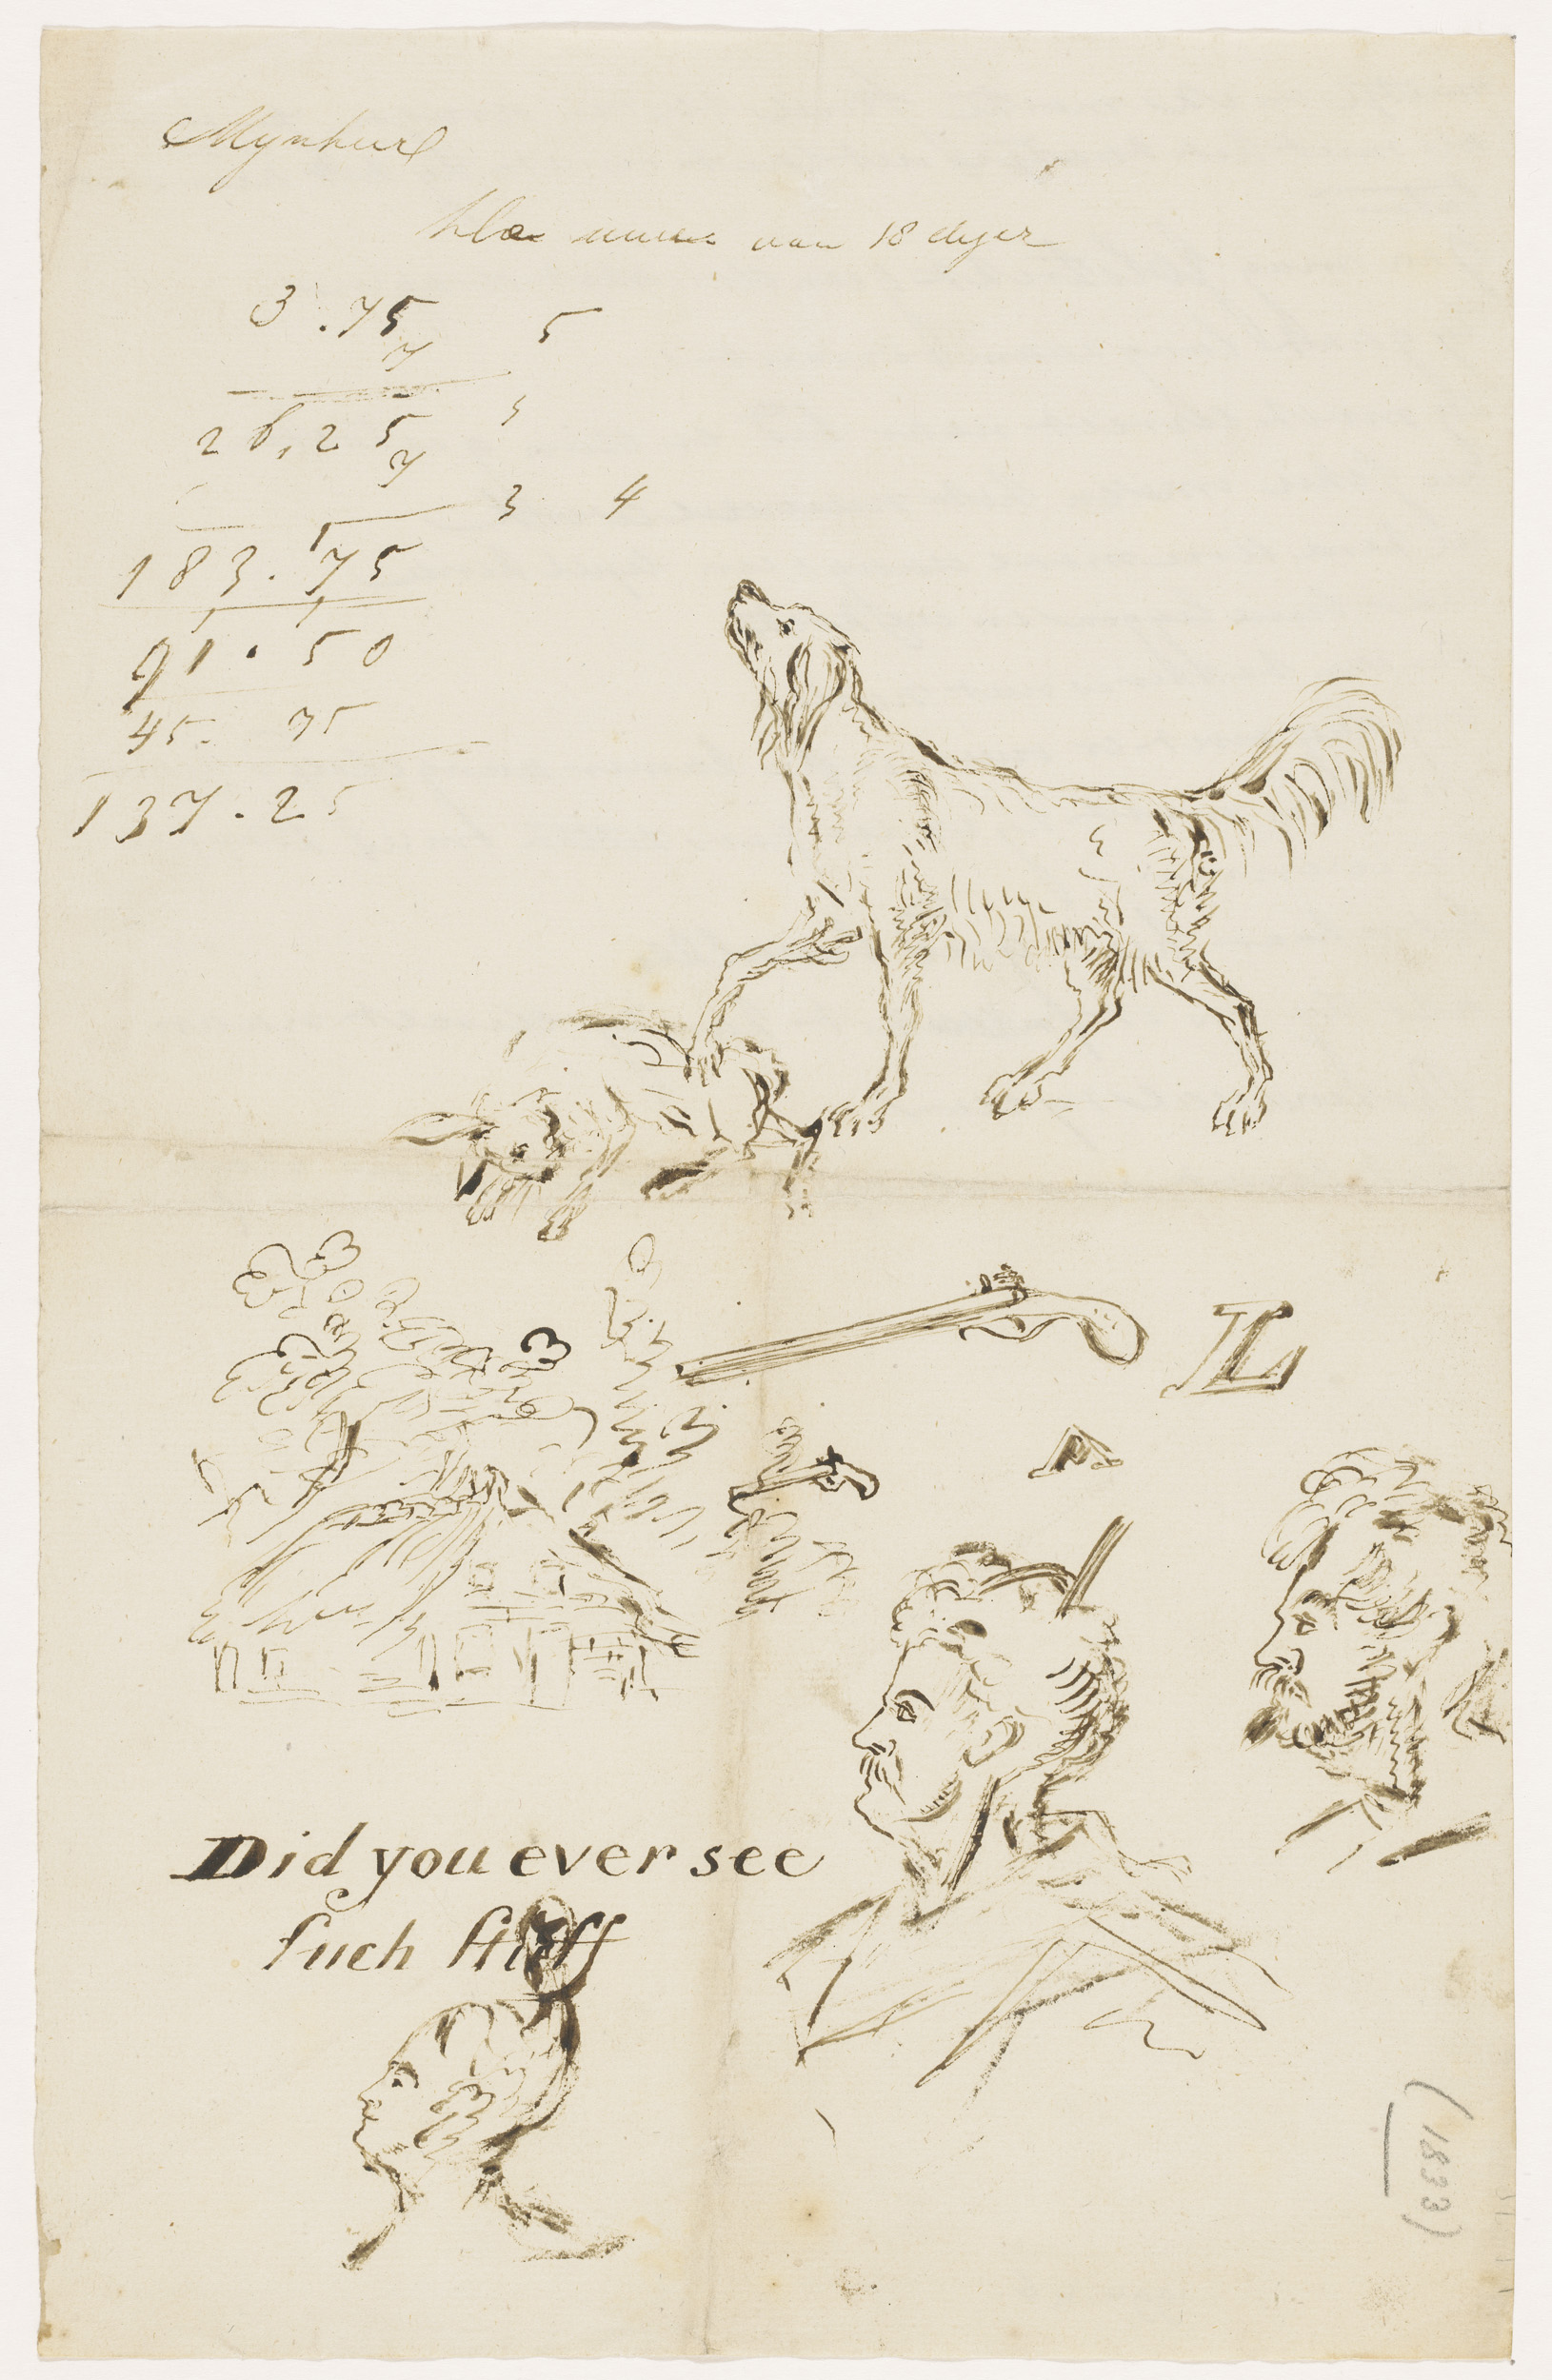 Mynheer
van 18 dezer
3.75 5
7
26,25 5
7
3 4
183.75
91.50
45.75
137.25
L
A
Did you ever see
ſuch ſtuff
(1833)